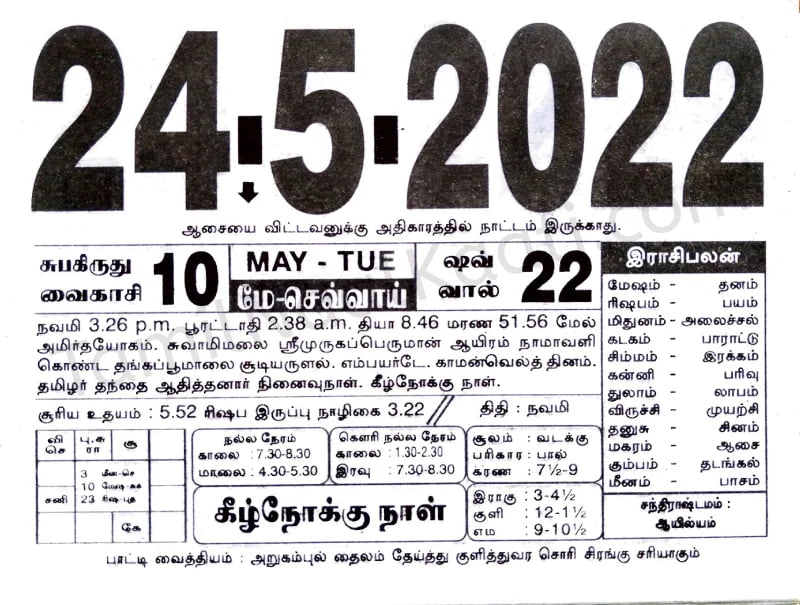 24.5.2022
ஆசையை விட்டவனுக்கு அதிகாரத்தில் நாட்டம் இருக்காது.
சுபகிருது
வைகாசி
10
MAY - TUE
மே-செவ்வாய்
ஷவ்
வால்
22
நவமி 3.26 p.m. பூரட்டாதி 2.38 a.m. தியா 8.46 மரண 51.56 மேல்
அமிர்தயோகம். சுவாமிமலை ஸ்ரீமுருகப்பெருமான் ஆயிரம் நாமாவளி
கொண்ட தங்கப்பூமாலை சூடியருளல். எம்பயர்டே. காமன்வெல்த் தினம்.
தமிழர் தந்தை ஆதித்தனார் நினைவுநாள். கீழ்நோக்கு நாள்.
சூரிய உதயம் : 5.52 ரிஷப இருப்பு நாழிகை 3.22 // திதி : நவமி
வி
செ
பு.சு
ரா
சூ
3 மீன-செ
10
சனி
23 ரிஷ புத
கே
நல்ல நேரம்
காலை : 7.30-8.30
மாலை : 4.30-5.30
கௌரி நல்ல நேரம்
காலை : 1.30-2.30
இரவு : 7.30-8.30
கீழ்நோக்கு நாள்
சூலம் : வடக்கு
பரிகார : பால்
கரண : 7½-9
இராகு : 3-4½
குளி : 12-1½
எம : 9-10½
இராசிபலன்
மேஷம் - தனம்
ரிஷபம் - பயம்
மிதுனம் - அலைச்சல்
கடகம் - பாராட்டு
சிம்மம் - இரக்கம்
கன்னி - பரிவு
துலாம் - லாபம்
விருச்சி - முயற்சி
தனுசு - சினம்
மகரம் - ஆசை
கும்பம் - தடங்கல்
மீனம் - பாசம்
சந்திராஷ்டமம் :
ஆயில்யம்
பாட்டி வைத்தியம் : அறுகம்புல் தைலம் தேய்த்து குளித்துவர சொரி சிரங்கு சரியாகும்